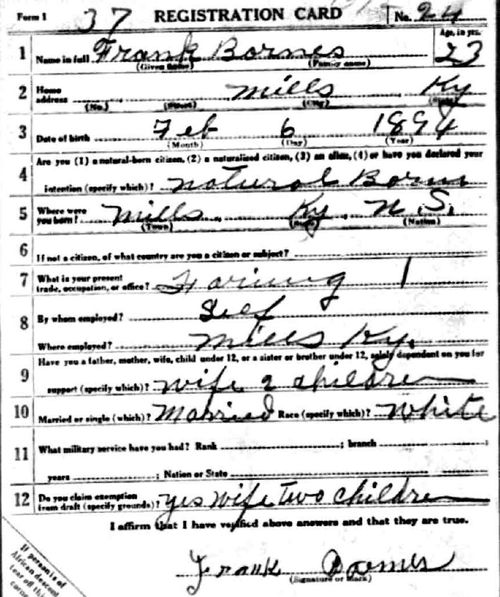 Form 1 37 REGISTRATION CARD No. 24
1 Name in full Frank Bornes Age, in yrs. 23
(Given name) (Family name)
2 Home address Mills Ky
(No.) (Street) (City) (State)
3 Date of birth Feb 6 1894
(Month) (Day) (Year)
4 Are you (1) a natural-born citizen, (2) a naturalized citizen, (3) an alien, (4) or have you declared your
intention (specify which)? natural Born
5 Where were you born? Mills Ky N.S.
(Town) (State) (Nation)
6 If not a citizen, of what country are you a citizen or subject?
7 What is your present trade, occupation, or office? Faring 1
8 By whom employed? Self
Where employed? Mills Ky.
9 Have you a father, mother, wife, child under 12, or a sister or brother under 12, solely dependent on you for
support (specify which)? Wife 2 children
10 Married or single (which)? Married Race (specify which)? White
11 What military service have you had? Rank ; branch ;
years ; Nation or State
12 Do you claim exemption from draft (specify grounds)? yes wife two children
I affirm that I have verified above answers and that they are true.
Frank Bornes
(Signature or Mark)
If person is of
African descent
tear off this
corner